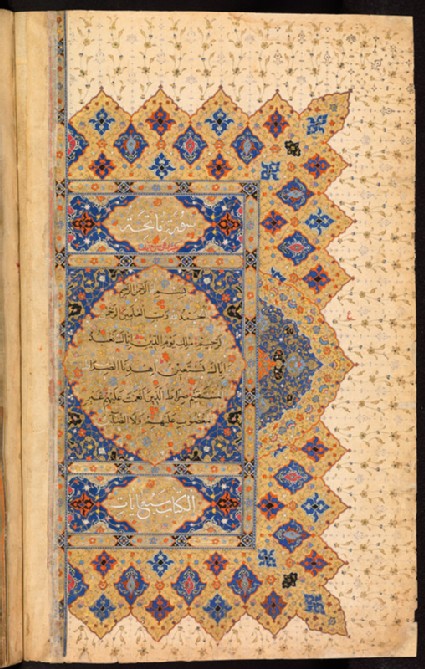 سورة فاتحة
بسم الله الرحمن الرحيم
الحمد لله رب العالمين الرحمن
الرحيم ملك يوم الدين اياك نعبد
و اياك نستعين اهدنا الصرا
المستقيم صراط الذين انعمت عليهم غير
المغضوب عليهم ولا الضالين
الكتاب سبع ايات